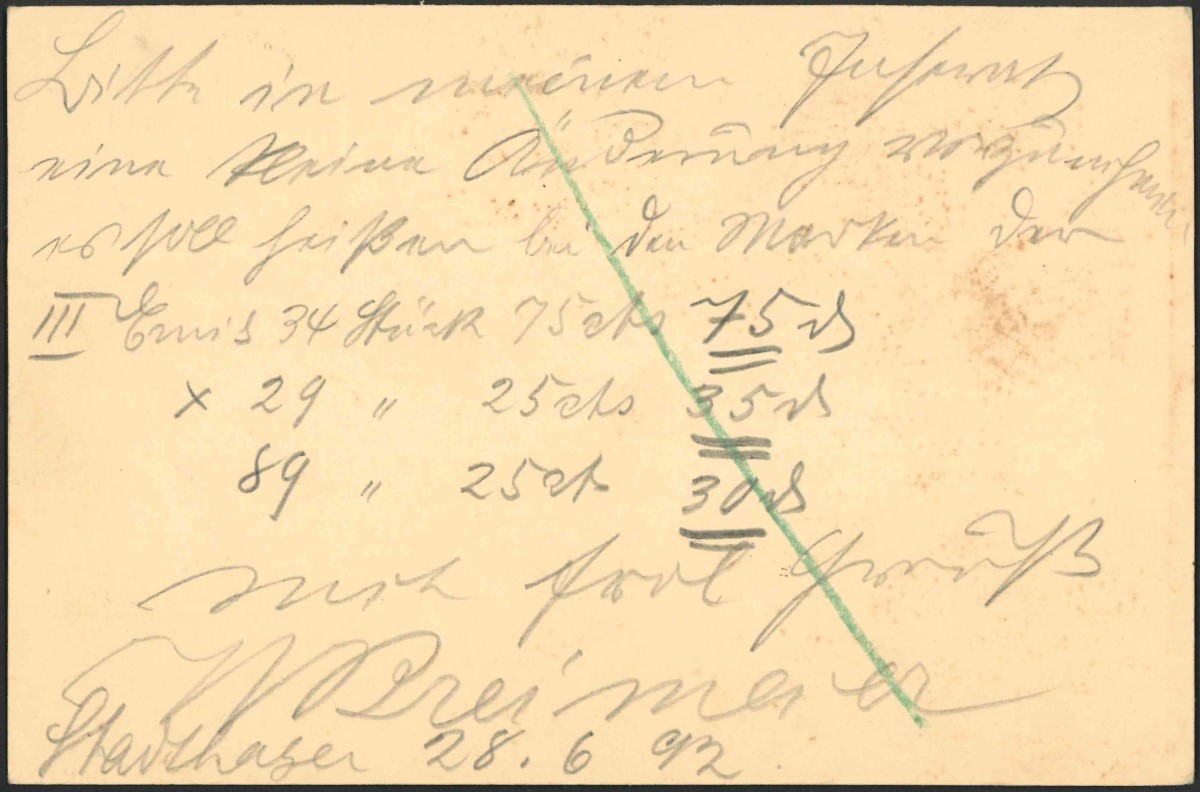 Bitte in meinen Inserat
eine kleine Änderung vorzunehmen
es soll heißen bei den Marken der
III Emis 34 Stück 75 cts 75 ₰
x 29 " 25 cts 35 ₰
89 " 25 ct 30 ₰
mit frdl Gruß
W Breimeier
Stadthagen 28. 6 92